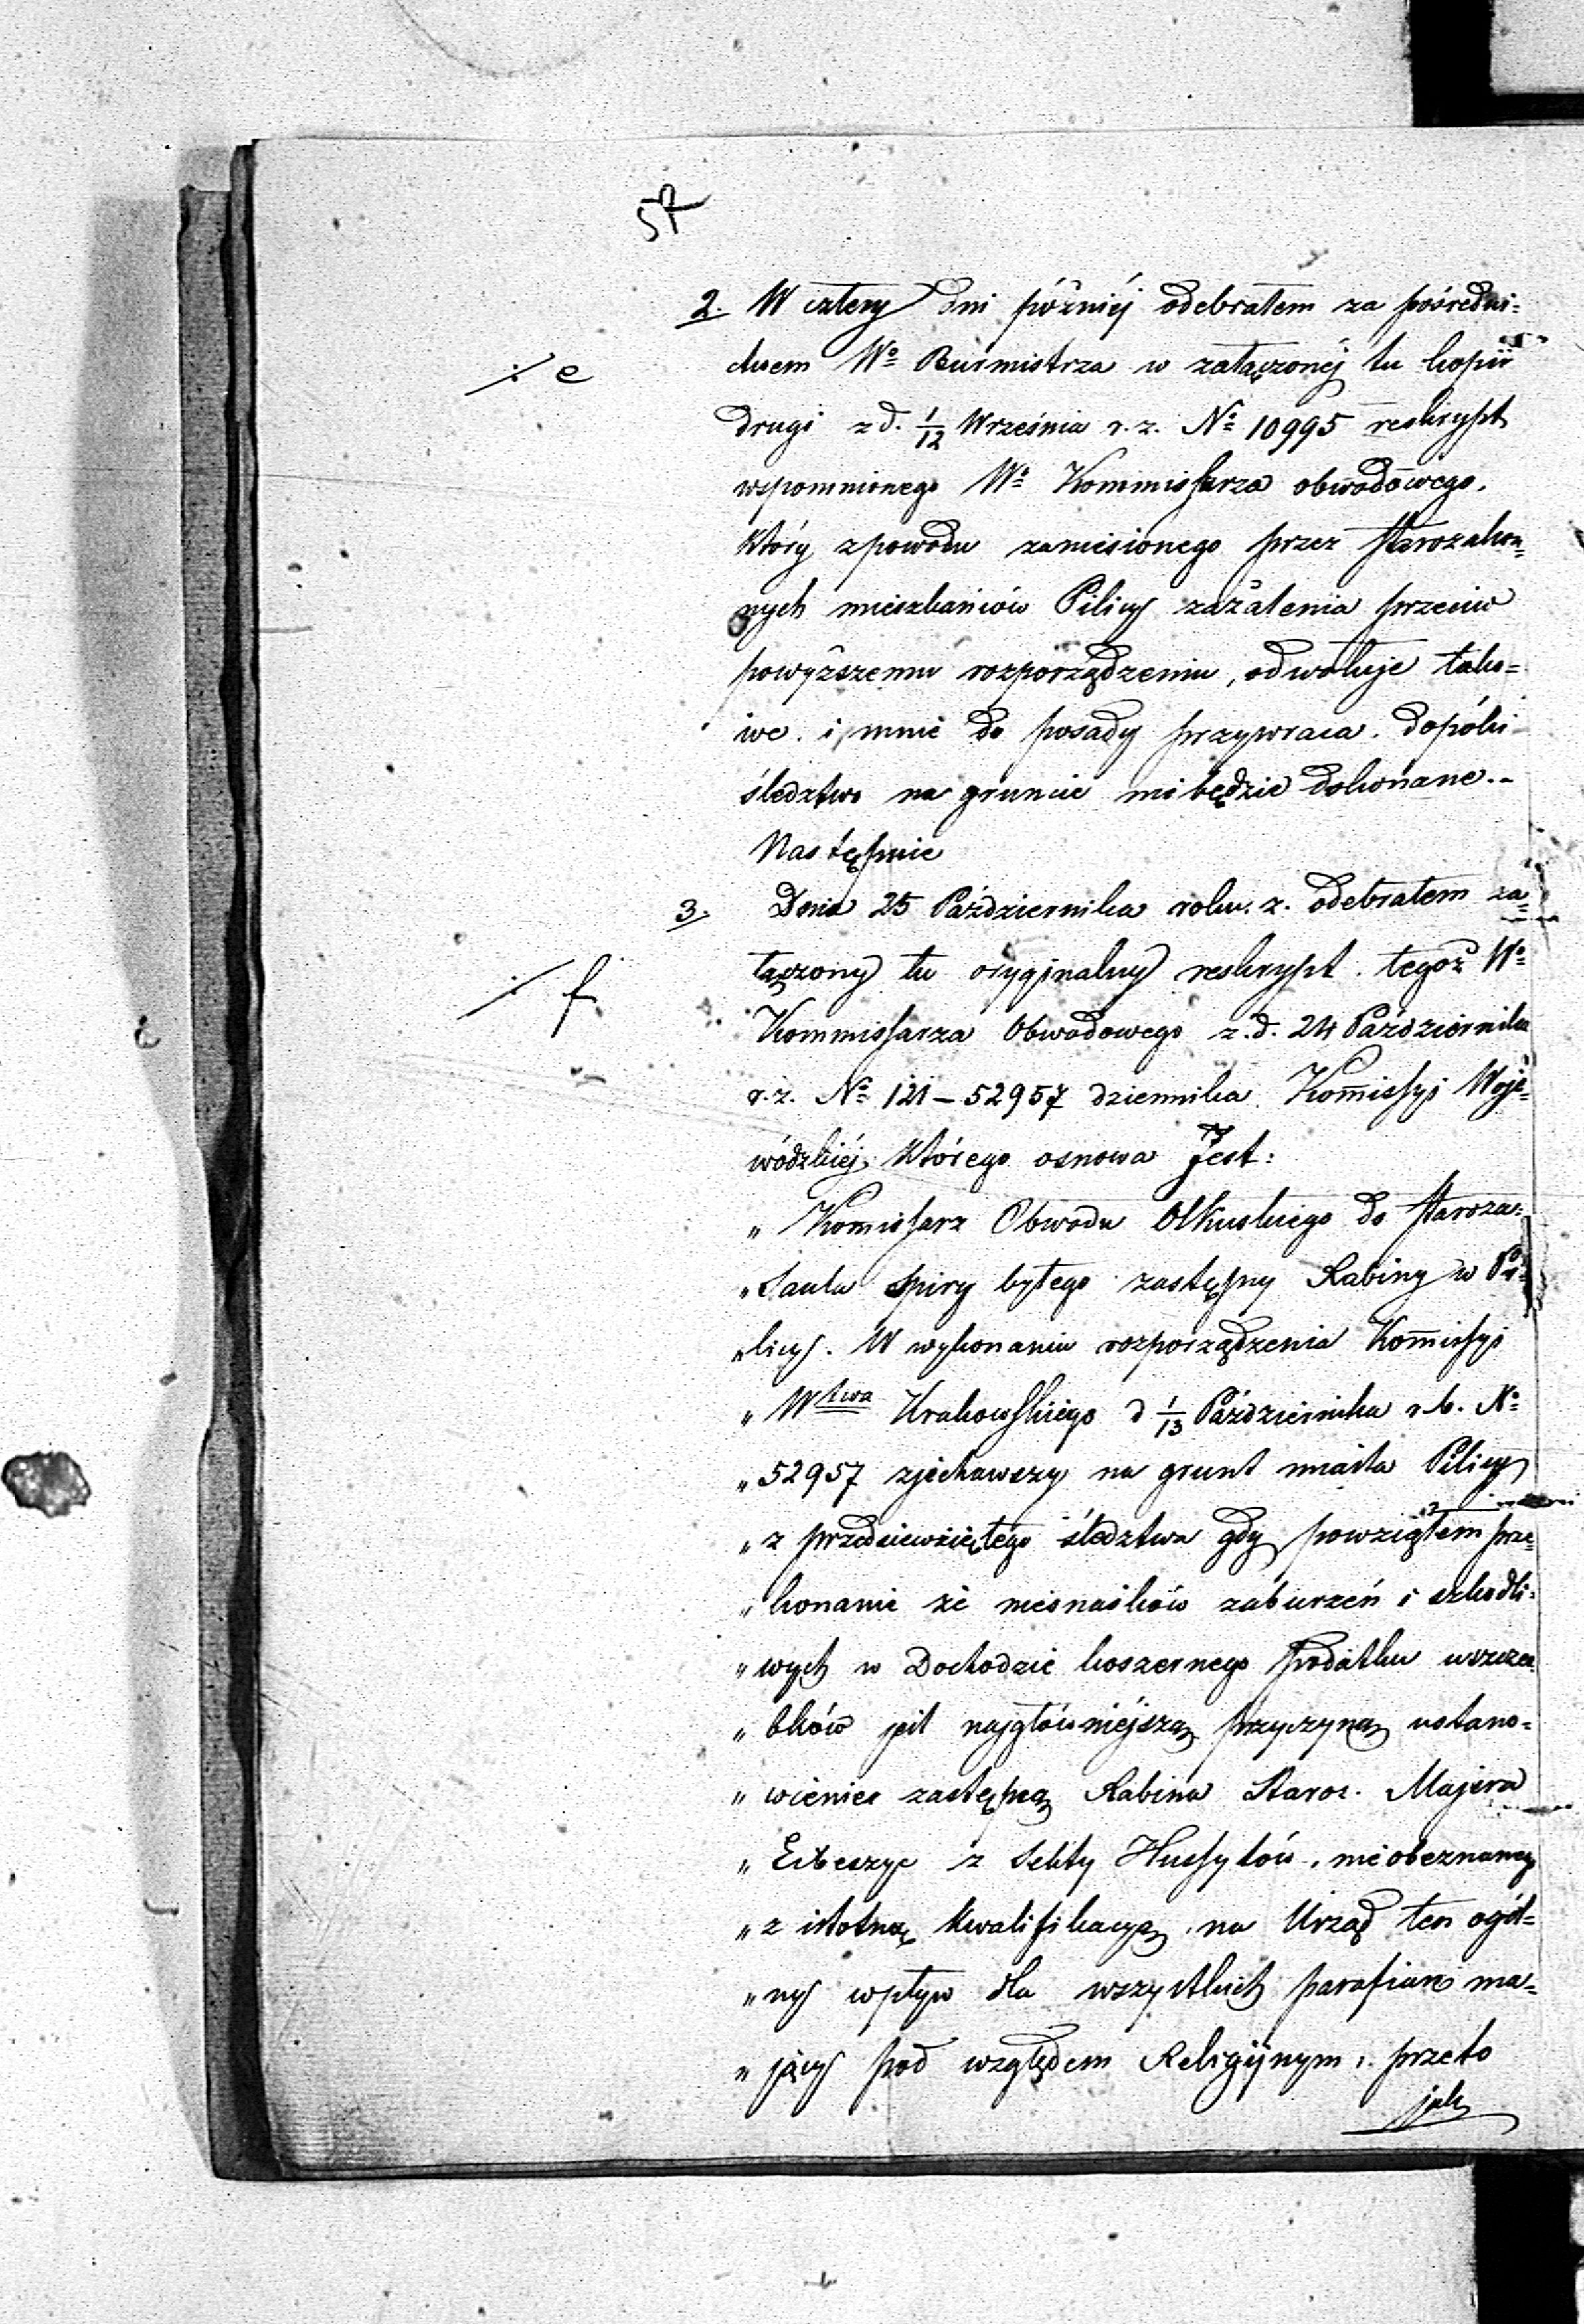 57
2. W cztery dni później odebrałem za pośredni=
ctwem Wº Burmistrza w załączonéj tu kopii
./. e
drugi z d. 1/12 Września r. z. Nº 10995 reskrypt
wspomnionego Wº Kommissarza obwodowego,
który z powodu zaniesionego przez Starozakon=
nych mieszkańców Pilicy zażalenia przeciw
powyższemu rozporządzeniu, odwołuje tako=
we i mnie do posady przywraca dopóki
śledztwo na gruncie nie będzie dokonane.-
Następnie
3. Dnia 25 Października roku z. odebrałem za=
łączony tu oryginalny reskrypt tegoż Wº
./. f
Kommissarza Obwodowego z. d. 24 Października
r. z. Nº 121–52957 dziennika Kommissyi Woje=
wódzkiéj którego osnowa Jest:
„ Komissarz Obwodu Olkuskiego do Staroza:
„ Saula Spiry byłego zastępcy Rabiny w Pi=
„ licy. W wykonaniu rozporządzenia Kommissyi
„ Wtwa Krakowskiego d 1/13 Października r. b. Nº
„ 52957 zjechawszy na grunt miasta Pilicy
„ z przedsiewziętego śledztwa gdy powziąłem prze=
„ konanie że niesnasków zaburzeń i szkodli=
„ wych w Dochodzie koszernego podatku uszczer
„ bków jest najgłówniejszą przyczyną ustano=
„ wienie zastępcą Rabina Staroz. Majera
„ z Sekty Hussytów, nieobeznanego
„ z istotną kwalifikacyą na Urząd ten ogól=
„ ny wpływ dla wszystkich parafian ma=
„ jący pod względem Religijnym, przeto
jak